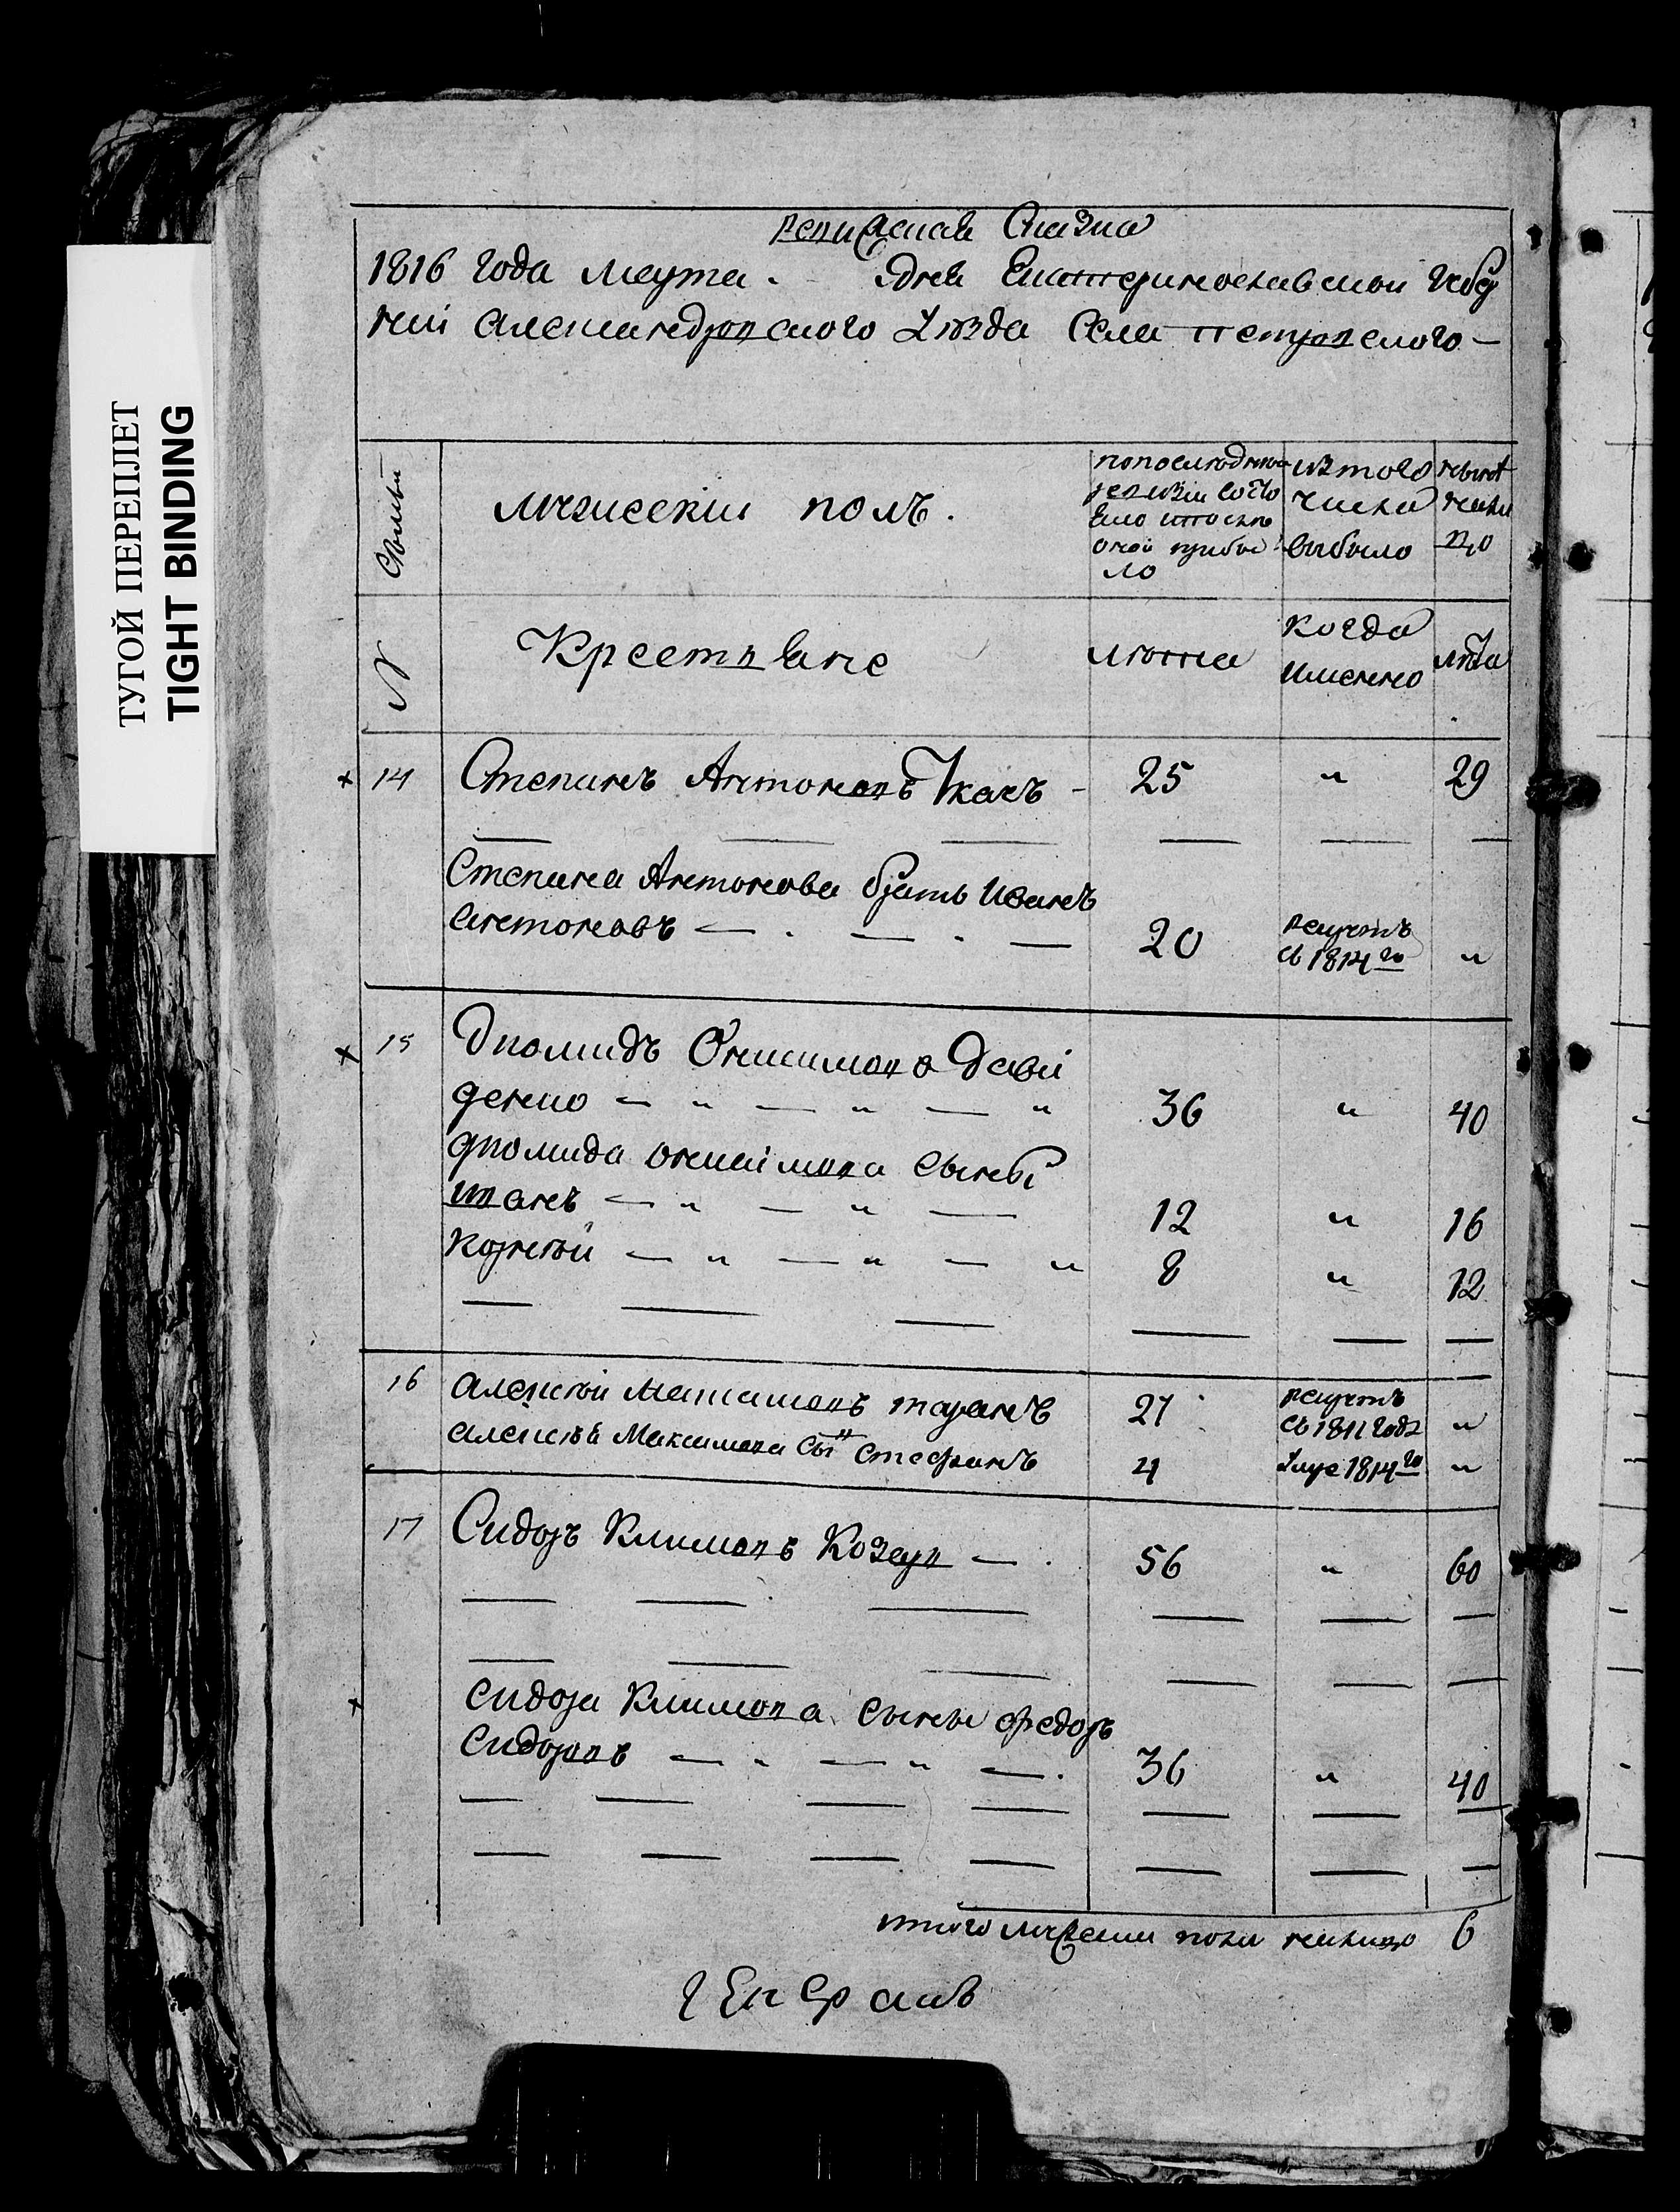 ТУГОЙ ПЕРЕПЛЕТ
TIGHT BINDING
Ревижская Сказка
1816 года марта дня Екатеринославской Губер
нии Александровского Уѣзда Села Петровского
Семьи
мужескій полъ.
по последней
ревизіи состо
яло и после
оной прибы
ло
изтого
числа
выбыло
ныне
на лицо
№
Крестьяне
лѣта
когда
имянно
лѣта
14 Степанъ Антоновъ Ткачъ 25 " 29
Степана Антонова братъ Иванъ
антоновъ 20 рекрутъ съ 1814го "
15 Диомидъ Онисимова Дави
денко 36 " 40
диомида онисимова сыны
иванъ 12 " 16
корней 8 " 12
16 алексѣй Максимовъ таранъ 27 рекрутъ съ 1811 года "
алексѣя Максимова сынъ стефанъ 4 умре 1814го "
17 Сидоръ Климовъ Козеув 56 " 60
сидора Климова сыны федоръ
Сидоровъ 36 " 40
итого мужеска пола налицо 6